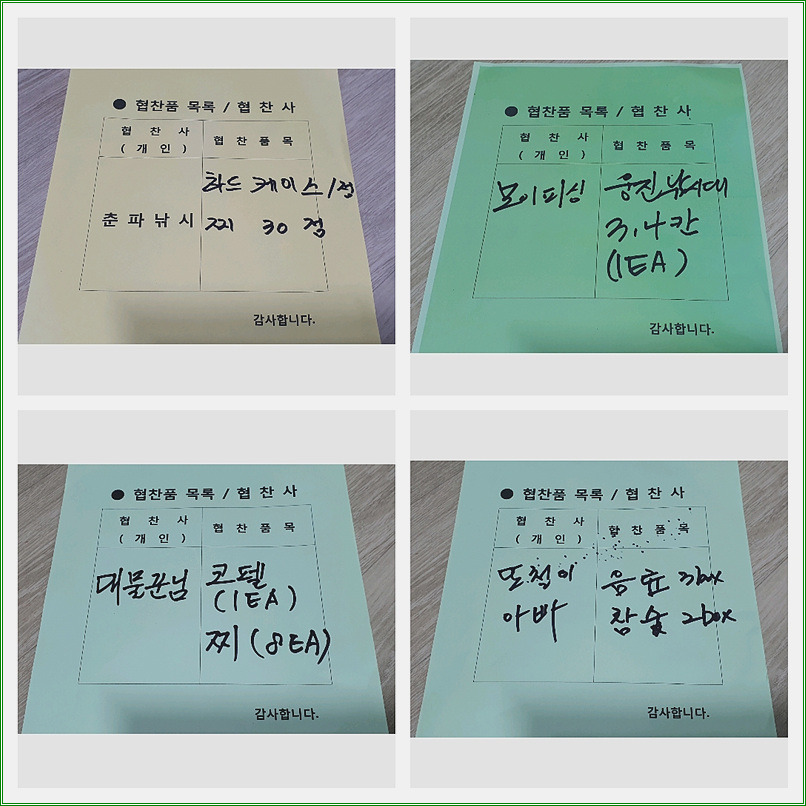 ● 협찬품 목록 / 협 찬 사
협 찬 사
( 개 인 )
협 찬 품 목
하드 케이스 1점
춘 파 낚 시
찌 30 점
감사합니다.
● 협찬품 목록 / 협 찬 사
협 찬 사
( 개 인 )
협 찬 품 목
모이피싱
웅진낚시대
3.4칸
(1EA)
감사합니다.
● 협찬품 목록 / 협 찬 사
협 찬 사
( 개 인 )
협 찬 품 목
대물꾼님
코펠
(1EA)
찌 (8EA)
감사합니다.
● 협찬품 목록 / 협 찬 사
협 찬 사
( 개 인 )
협 찬 품 목
또철이
아빠
음료 3box
참숯 2box
감사합니다.